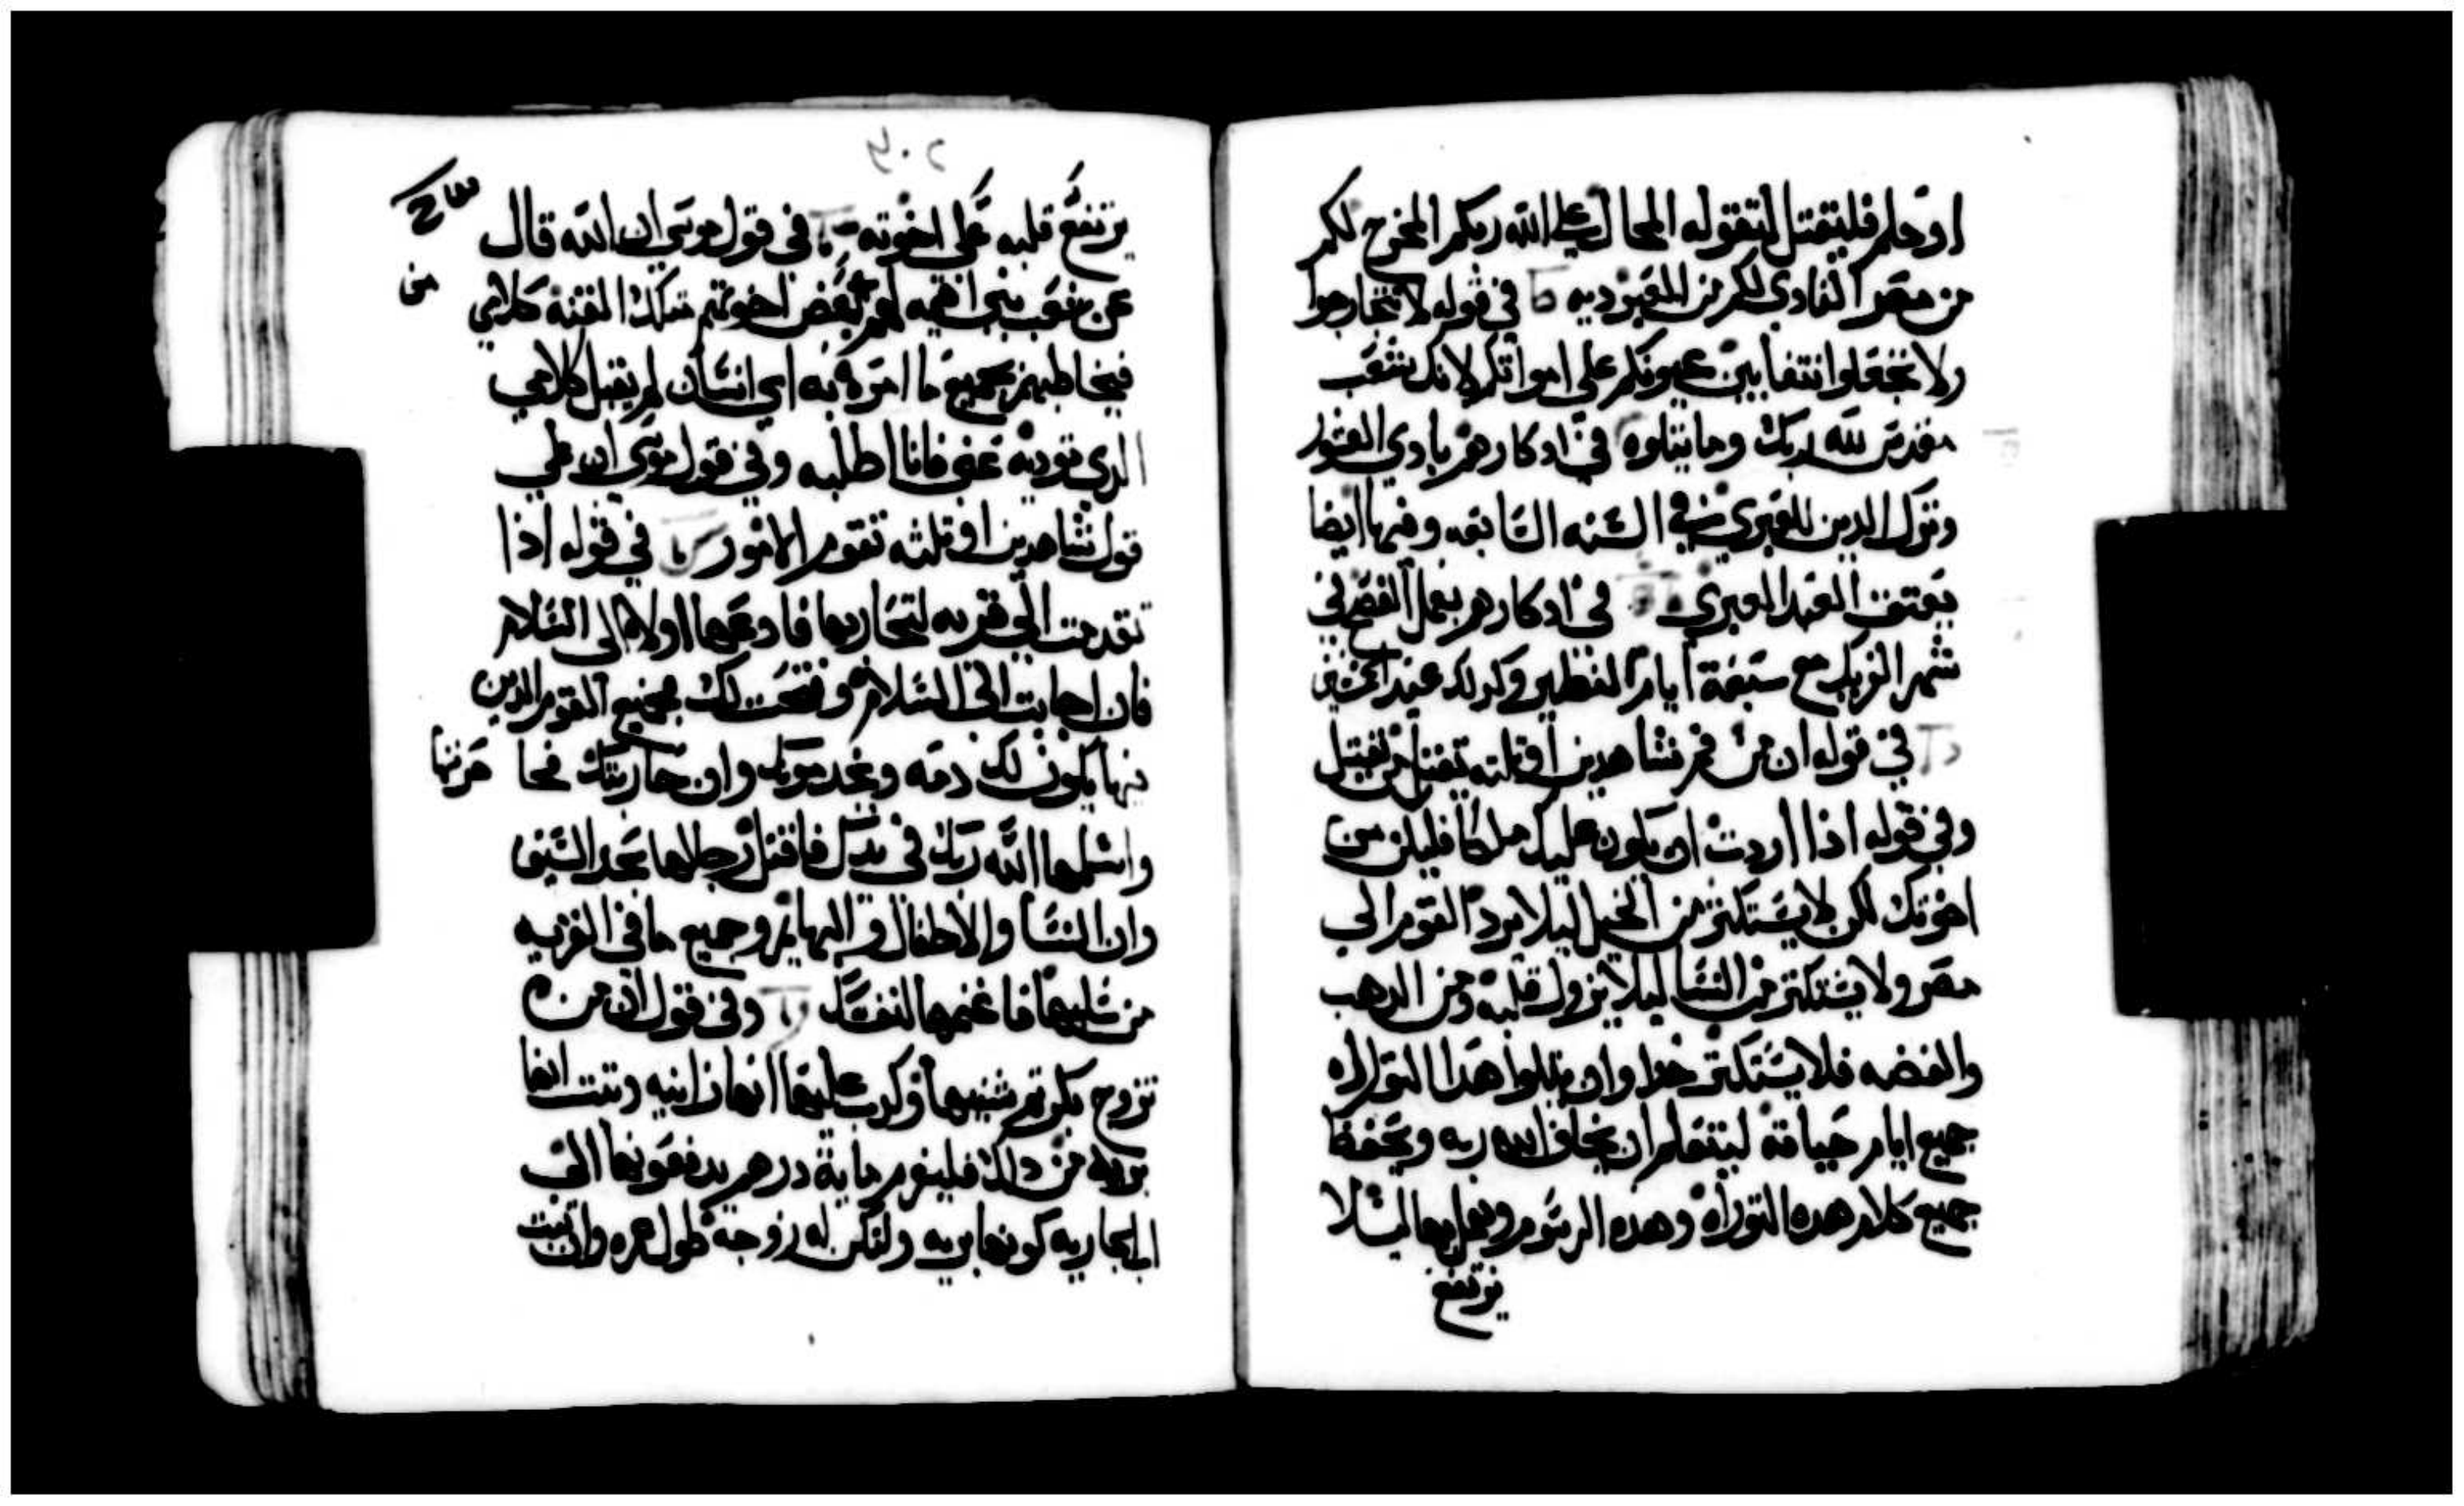 او حلم فليقتل لتقوله المحال على الله ربكم المخرج لكم
من مصر الفادي لكم من العبوديه في قوله لا تتخارجوا
ولا تجعلوا نتفا بين عيونكم على امواتكم لانك شعب
مقدس لله ربك وما يتلوه في ادكارهم بادي العشور
وترك الدين للعبري في السنه السابعه وفيها ايضا
يعتق العبد العبري في ادكارهم بعمل الفصح في
شهر الفريك مع سبعة ايام الفطير وكدلك عيد
في قوله ان من فم شاهدين او تلته يقتل من يقتل
وفي قوله اذا اردت ان يكون عليك ملكا فليكن من
اخوتك لكن لا يستكتر من الخيل ليلا يرد القوم الى
مصر ولا يستكتر من النسا ليلا يزول قلبه ومن الدهب
والفضه فلا يستكتر جدا وان يتلوا هدا التوراه
جميع ايام حياته ليتعلم ان يخاف الله ربه ويحفظ
جميع كلام هده التوراه وهده الرسوم ويعمل بها ليلا
يرتفع
٢٠٤
يرتفع قلبه على اخوته في قول موسى ان الله قال
من
فيخاطبهم بجميع ما امره به اي انسان لم يقبل كلامي
الدي يوديه عني فانا اطلبه وفي قول موسى ان على
قول شاهدين او تلته تقوم الامور في قوله اذا
تقدمت الى قريه لتحاربها فادعها اولا الى السلام
فان اجابت الى السلام وفتحت لك فجميع القوم الدين
بها يكون لك دمه ويخدمونك وان حاربتك فحا صرتها
واسلمها الله ربك في يدك فاقتل رجالها بحد السيف
وان النسا والاطفال والبهايم وجميع ما في القريه
من سلبها فاغنمها لنفسك وفي قول ان من
تزوج بكر تم شنيها وكدب عليها انها زانيه وتبت انها
بريه من دلك فليغرم ماية درهم يدفعونها الى
اب الجاريه كونها بريه ولتكن له زوجة طول عمره وان تبت